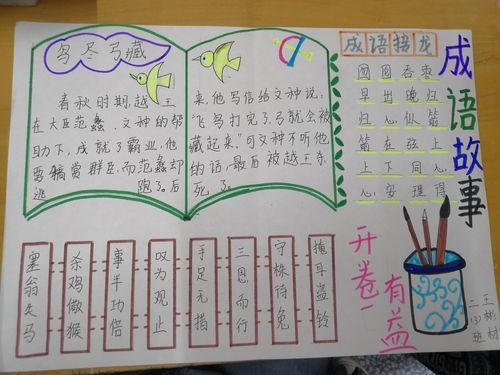 鸟尽弓藏
春秋时期,越王
在大臣范蠡、文种的帮
助下,成就了霸业,他
要犒赏群臣,而范蠡却
逃跑了。后
来,他写信给文种说:
“飞鸟打完了,弓就会被
藏起来。”可文种不听他
的话,最后被越王杀
死了。
成语接龙
囫囵吞枣
早出晚归
归心似箭
箭在弦上
上下同心
心安理得
成语故事
塞翁失马
杀鸡儆猴
事半功倍
叹为观止
手足无措
三思而行
守株待兔
掩耳盗铃
开卷有益
二(3)班
王彬材